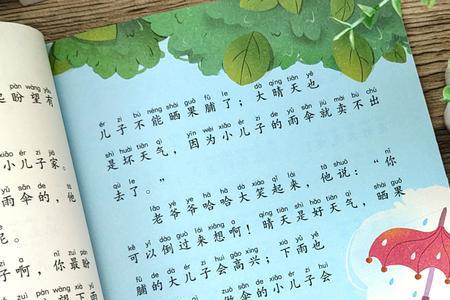 pàn wàng yǒu
盼望有
xiǎo ér zi jiā
小儿子家。
yǔ sǎn de tā
雨伞的,他
ne
呢。
zi a nǐ zuì pàn
子啊,你最盼
ér zi bù néng shài guǒ fǔ le dà qíng tiān yě
儿子不能晒果脯了;大晴天也
shì huài tiān qì yīn wèi xiǎo ér zi de yǔ sǎn jiù mài bù chū
是坏天气,因为小儿子的雨伞就卖不出
qù le
去了。”
lǎo yé ye hā hā dà xiào qǐ lái tā shuō nǐ
老爷爷哈哈大笑起来,他说:“你
kě yǐ dào guò lái xiǎng a qíng tiān shì hǎo tiān qì shài guǒ
可以倒过来想啊!晴天是好天气,晒果
fǔ de dà ér zi huì gāo xìng xià yǔ yě
脯的大儿子会高兴;下雨也
zuò sǎn de xiǎo ér zi huì
做伞的小儿子会